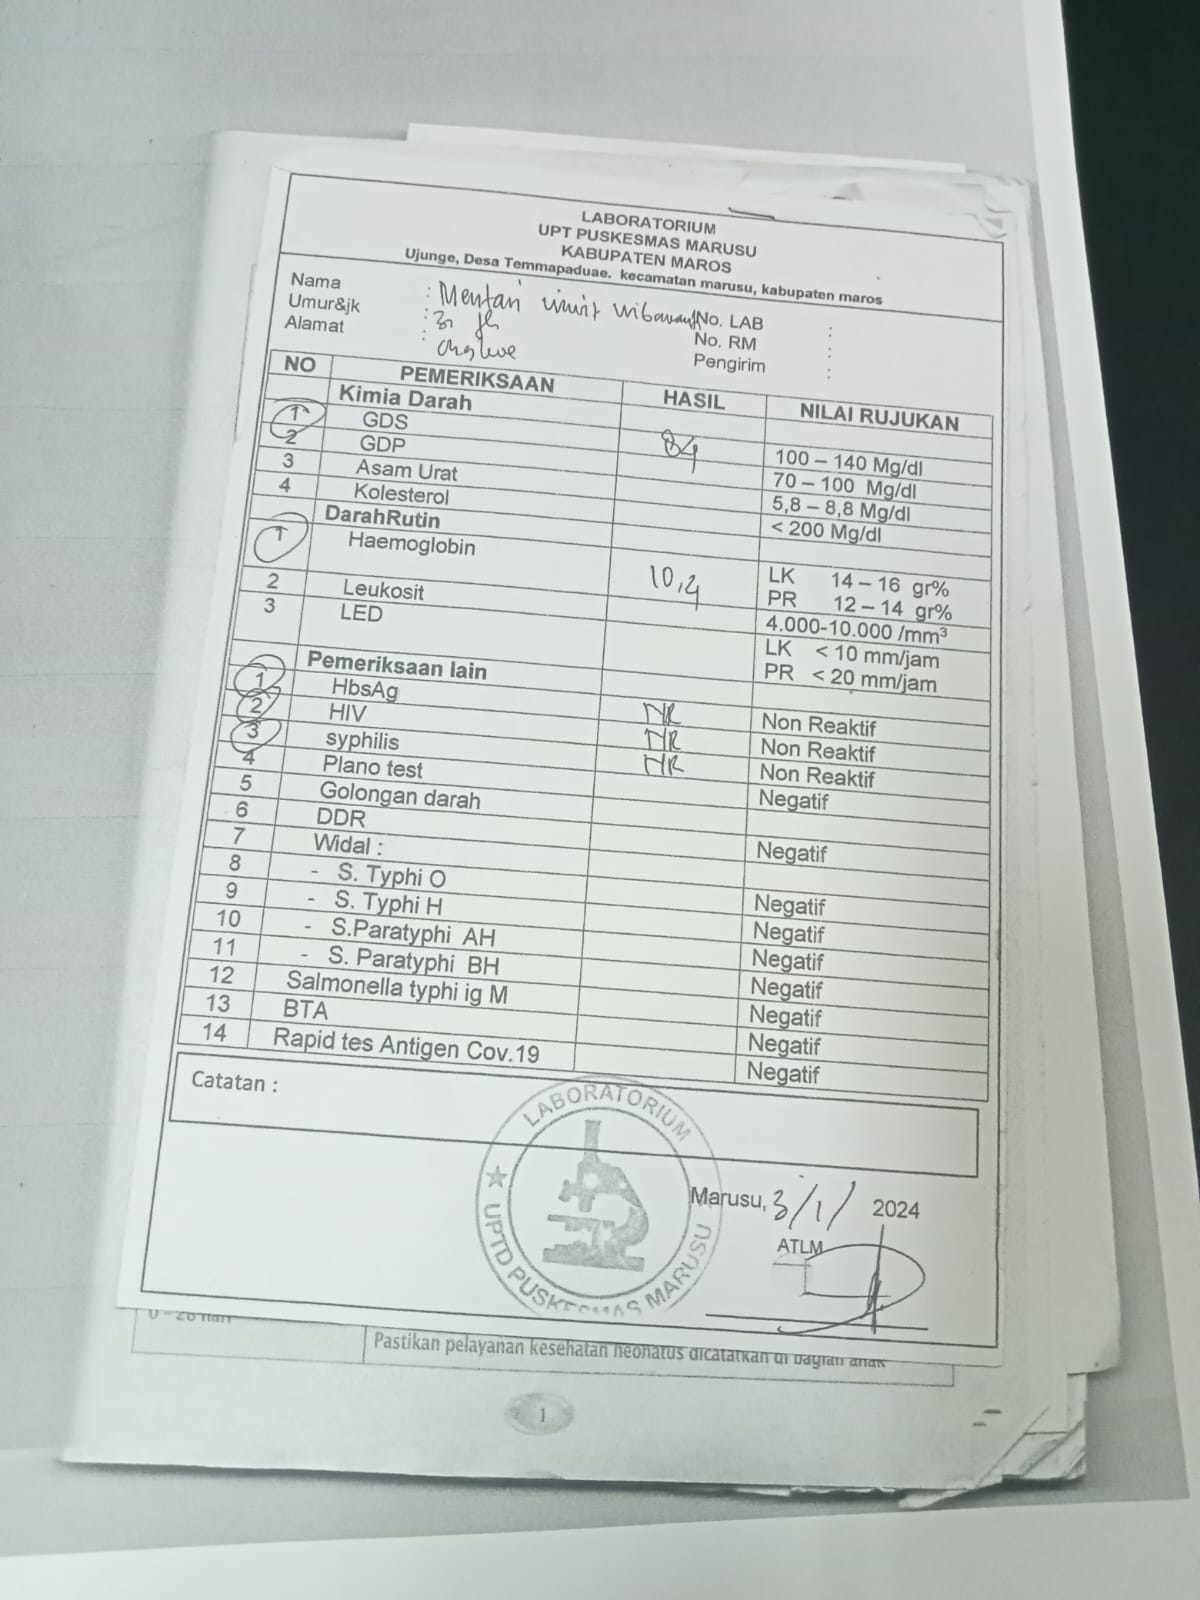 LABORATORIUM
UPT PUSKESMAS MARUSU
KABUPATEN MAROS
Ujunge, Desa Temmapaduae. kecamatan marusu, kabupaten maros
Nama : Mentari No. LAB :
Umur&jk : 31 th No. RM :
Alamat : Pengirim :
NO PEMERIKSAAN HASIL NILAI RUJUKAN
Kimia Darah
1 GDS 84 100 – 140 Mg/dl
2 GDP 70 – 100 Mg/dl
3 Asam Urat 5,8 – 8,8 Mg/dl
4 Kolesterol < 200 Mg/dl
DarahRutin
1 Haemoglobin 10,4 LK 14 – 16 gr%
PR 12 – 14 gr%
2 Leukosit 4.000-10.000 /mm³
3 LED LK < 10 mm/jam
PR < 20 mm/jam
Pemeriksaan lain
1 HbsAg NR Non Reaktif
2 HIV NR Non Reaktif
3 syphilis NR Non Reaktif
4 Plano test Negatif
5 Golongan darah
6 DDR Negatif
7 Widal :
8 - S. Typhi O Negatif
9 - S. Typhi H Negatif
10 - S.Paratyphi AH Negatif
11 - S. Paratyphi BH Negatif
12 Salmonella typhi ig M Negatif
13 BTA Negatif
14 Rapid tes Antigen Cov.19 Negatif
Catatan :
LABORATORIUM
UPTD PUSKESMAS MARUSU
Marusu, 3/1/ 2024
ATLM
0 - 28 hari
Pastikan pelayanan kesehatan neonatus dicatatkan di bagian anak
1